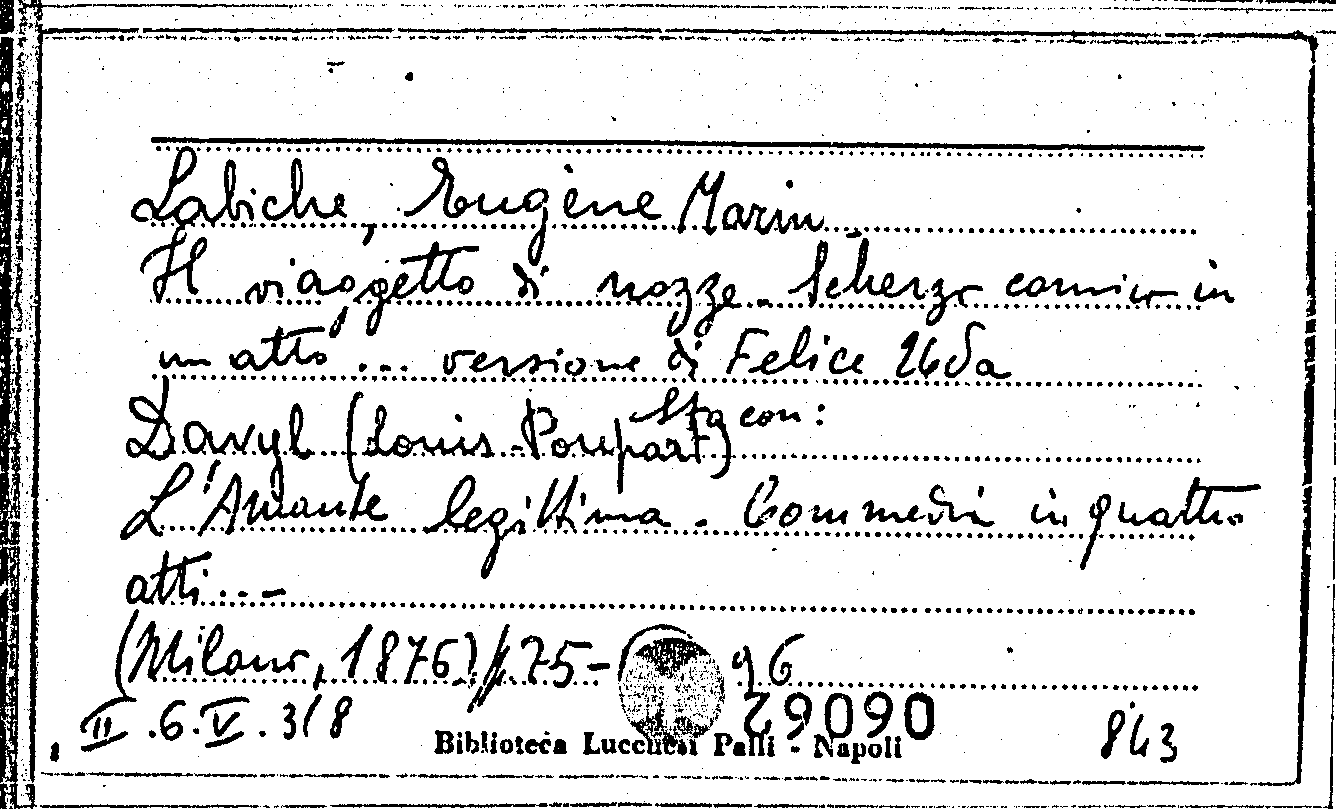 Labiche, Eugène Marin
Il viaggetto di nozze. Scherzo comico in
un atto ... versione di Felice Uda
Sta con:
Davyl (Louis Poupart)
L'Amante legittima. Commedia in quattro
atti...-
(Milano, 1876) p. 75- 96
II.6.V.3/8
29090
843
Biblioteca Lucchesi Palli - Napoli